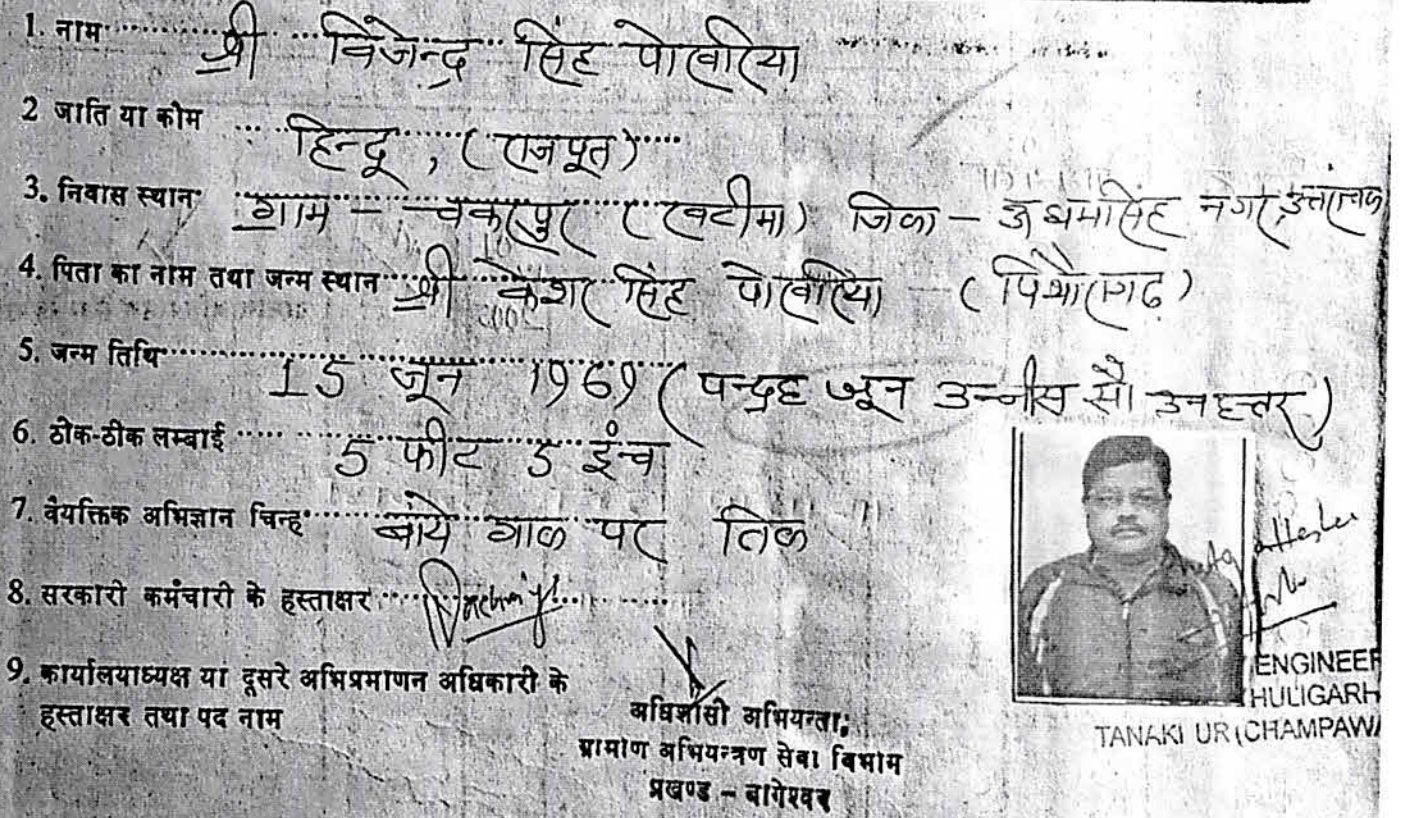 1. नाम श्री विजेन्द्र सिंह पोखरिया
2 जाति या कौम हिन्दू, (राजपूत)
3. निवास स्थान ग्राम - चकरपुर (खटीमा) जिला - उधमसिंह नगर, उत्तरांचल
4. पिता का नाम तथा जन्म स्थान श्री केशर सिंह पोखरिया - (पिथौरागढ़)
5. जन्म तिथि 15 जून 1969 (पन्द्रह जून उन्नीस सौ उनहत्तर)
6. ठीक-ठीक लम्बाई 5 फीट 5 इंच
7. वैयक्तिक अभिज्ञान चिन्ह बांये गाल पर तिल
8. सरकारी कर्मचारी के हस्ताक्षर
9. कार्यालयाध्यक्ष या दूसरे अभिप्रमाणन अधिकारी के
हस्ताक्षर तथा पद नाम
अधिशासी अभियन्ता;
ग्रामीण अभियन्त्रण सेवा विभाग
प्रखण्ड - बागेश्वर
ENGINEER
HULIGARH
TANAKPUR (CHAMPAWA